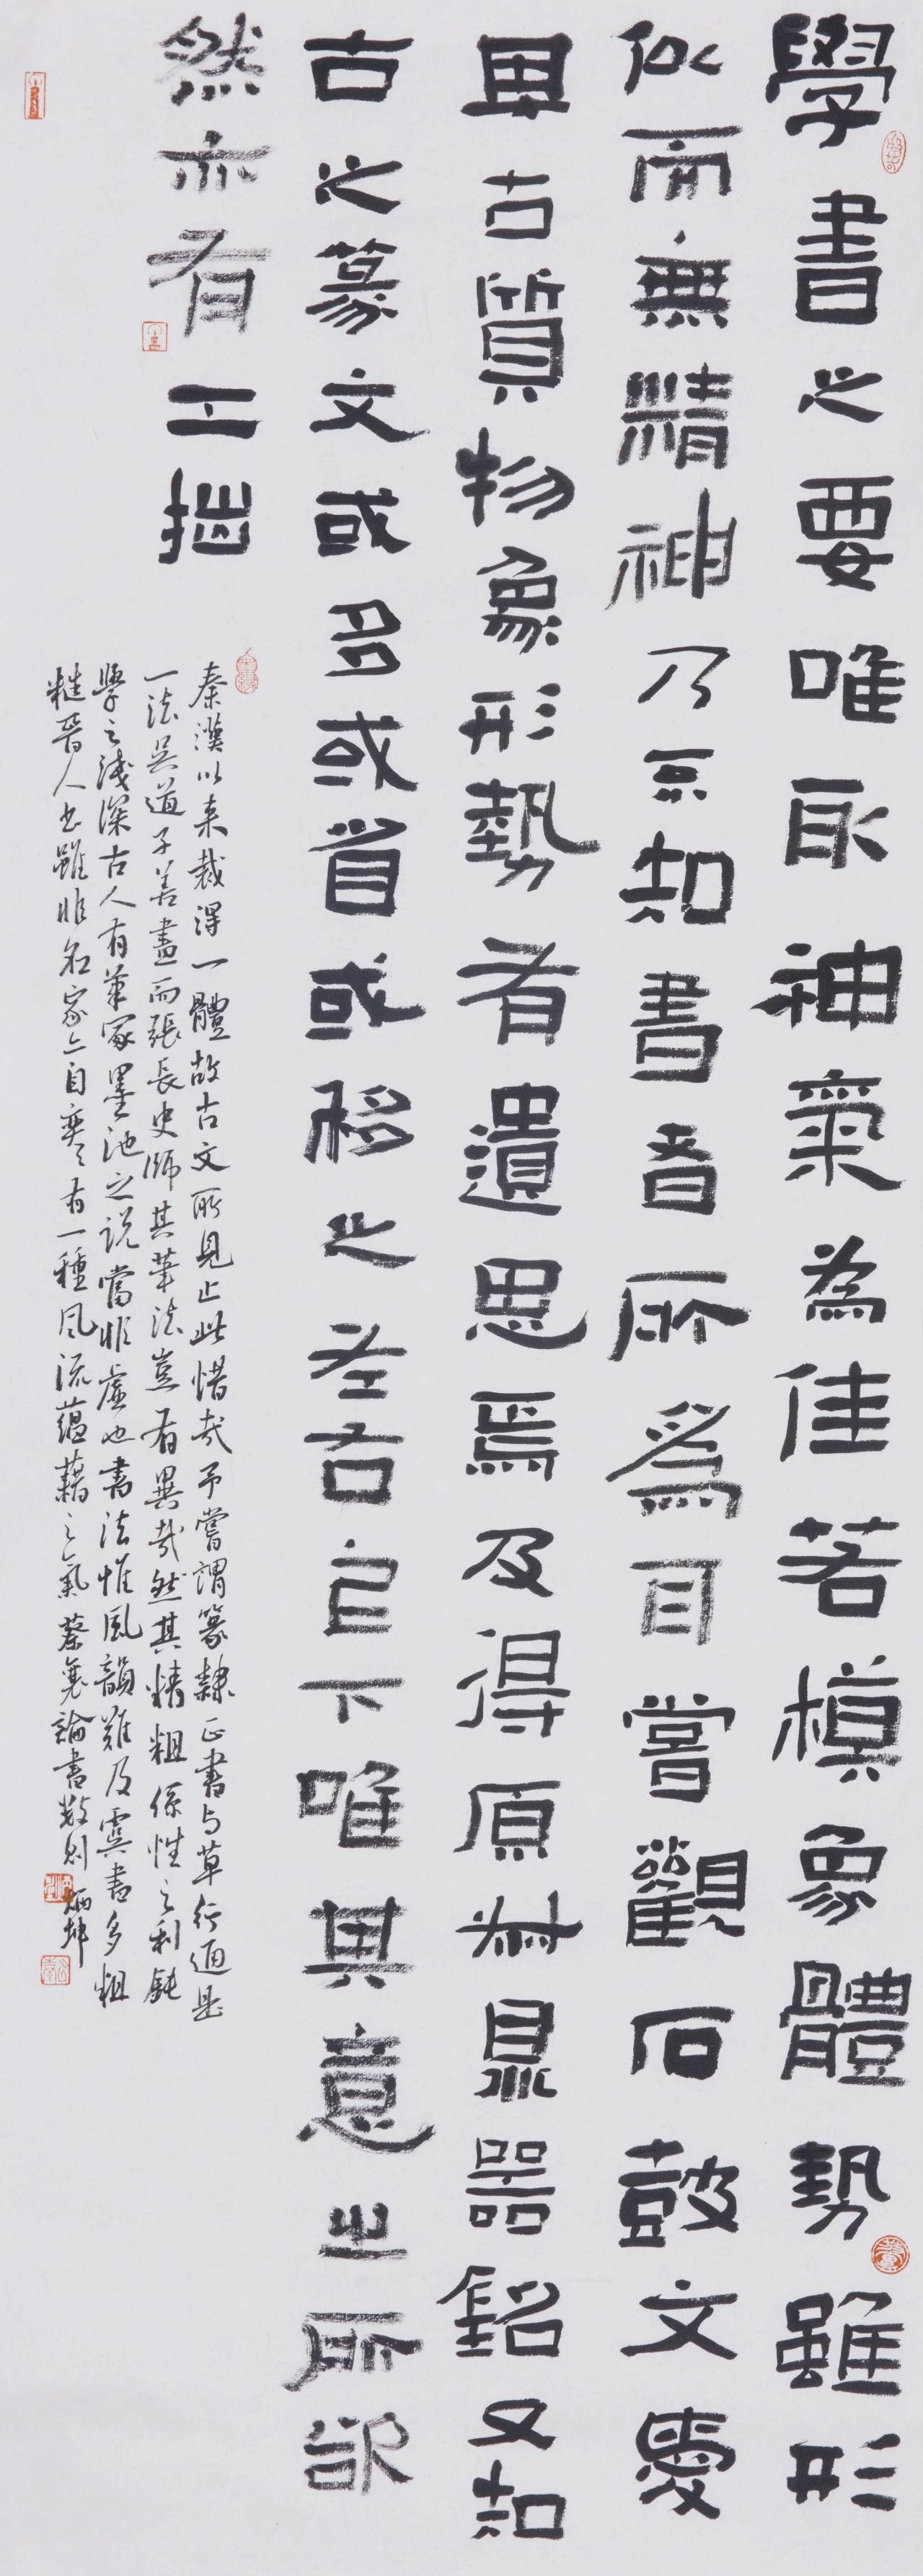 學書之要唯取神氣為佳若模象體勢雖形
似而無精神乃不知書者所為耳嘗觀石鼓文愛
其古質物象形勢有遺思焉及得原叔鼎器銘又知
古之篆文或多或省或移之左右上下唯其意之所欲
然亦有工拙
秦漢以来裁得一體故古文所見止此惜哉予嘗謂篆隸正書与草行通是
一法吳道子善畫而張長史師其筆法豈有異哉然其精粗係性之利鈍
學之淺深古人有筆冢墨池之説當非虛也書法惟風韻難及虞書多粗
糙晉人書雖非名家亦自奕奕有一種風流蘊藉之氣蔡襄論書數則 炳坤